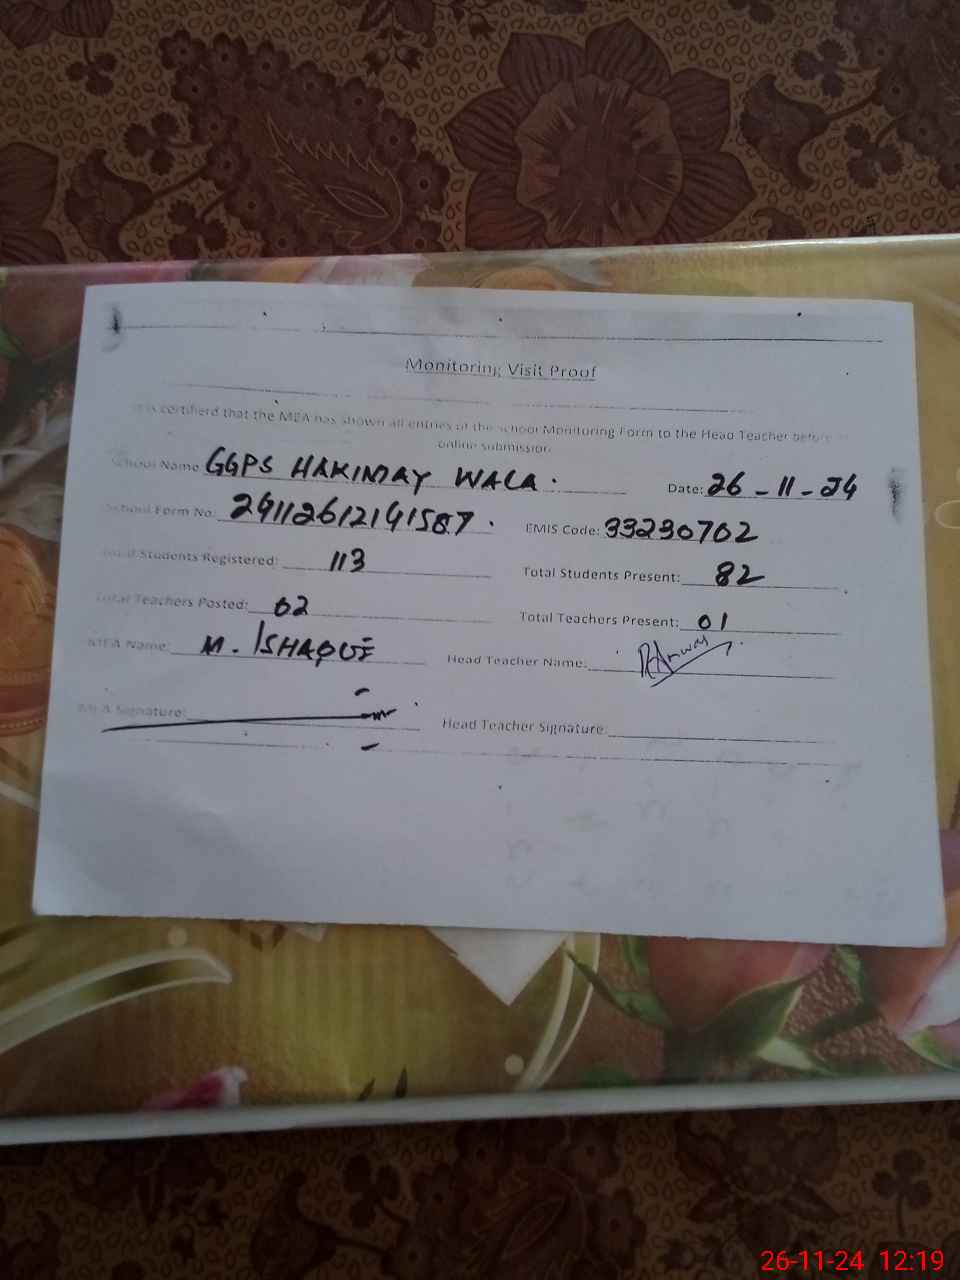 Monitoring Visit Proof
It is certifierd that the MEA has shown all entries of the school Monitoring Form to the Head Teacher before
online submission
School Name GGPS HAKIMAY WALA . Date: 26-11-24
School Form No: 24112612141587 . EMIS Code: 33230702
Total Students Registered: 113 Total Students Present: 82
Total Teachers Posted: 02 Total Teachers Present: 01
MEA Name: M. ISHAQUE Head Teacher Name:
MEA Signature: Head Teacher Signature
26-11-24 12:19